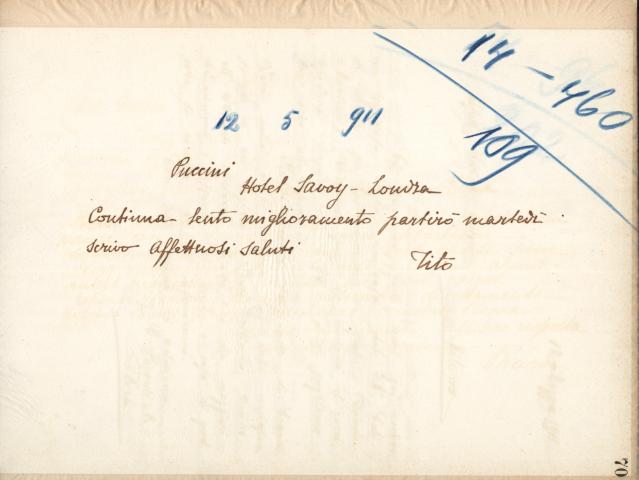 14-460
109
12 5 911
Puccini
Hotel Savoy - Londra
Continua lento miglioramento partirò martedì
scrivo Affettuosi saluti
Tito
70